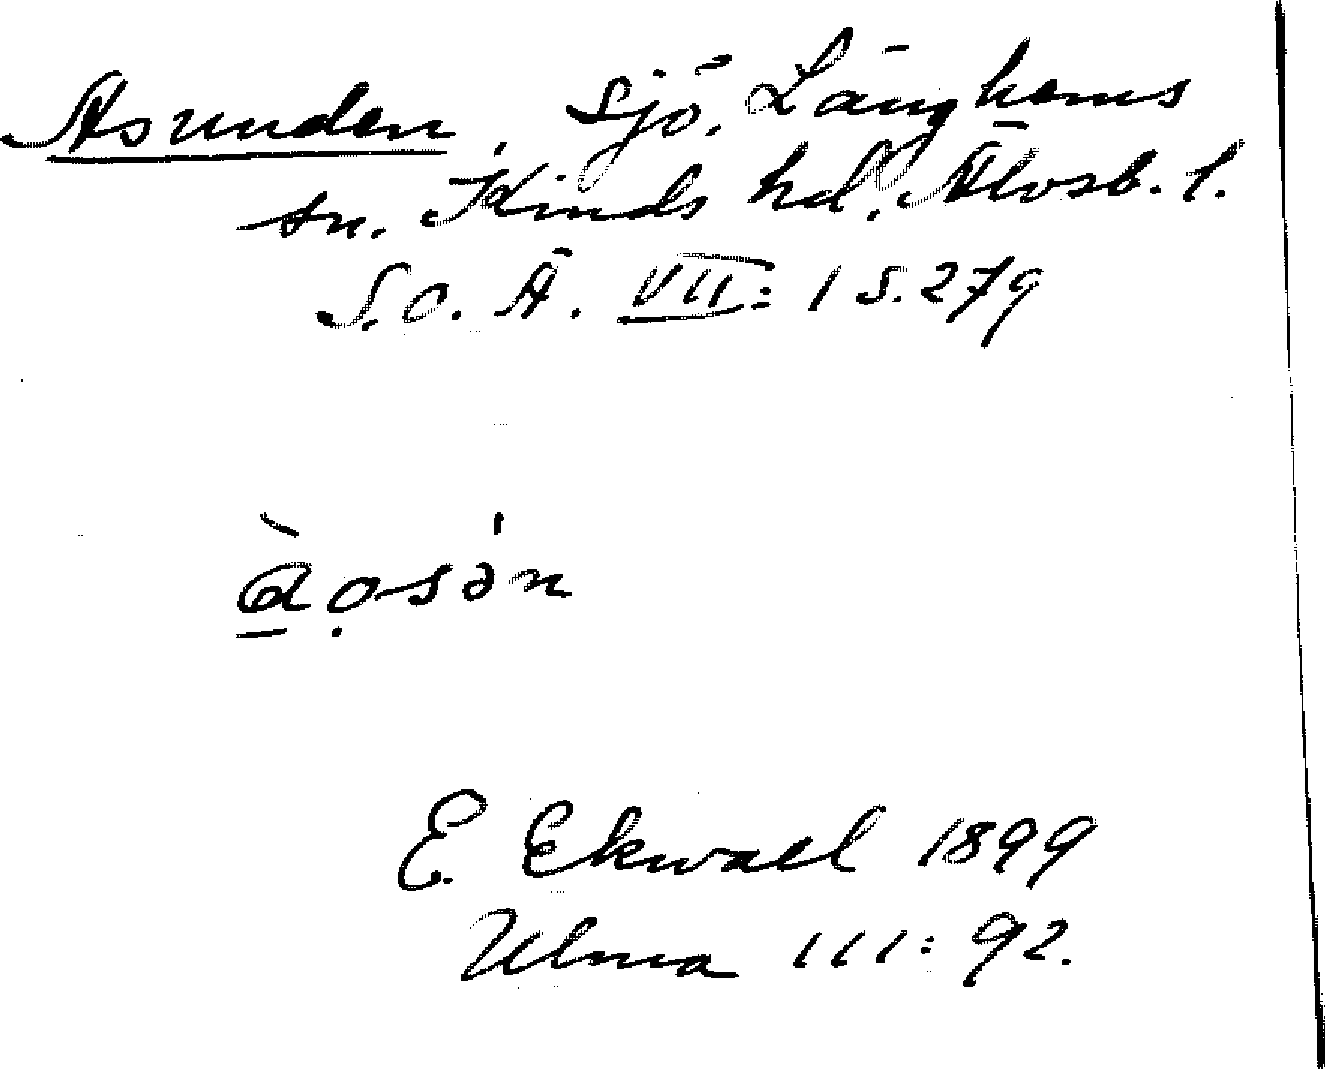 Åsunden, Sjö. Länghems
sn. Kinds hd. Älvsb. l.
S.O.Ä. VII: 1 s. 279
E. Ekwall 1899
Ulma 111: 92.